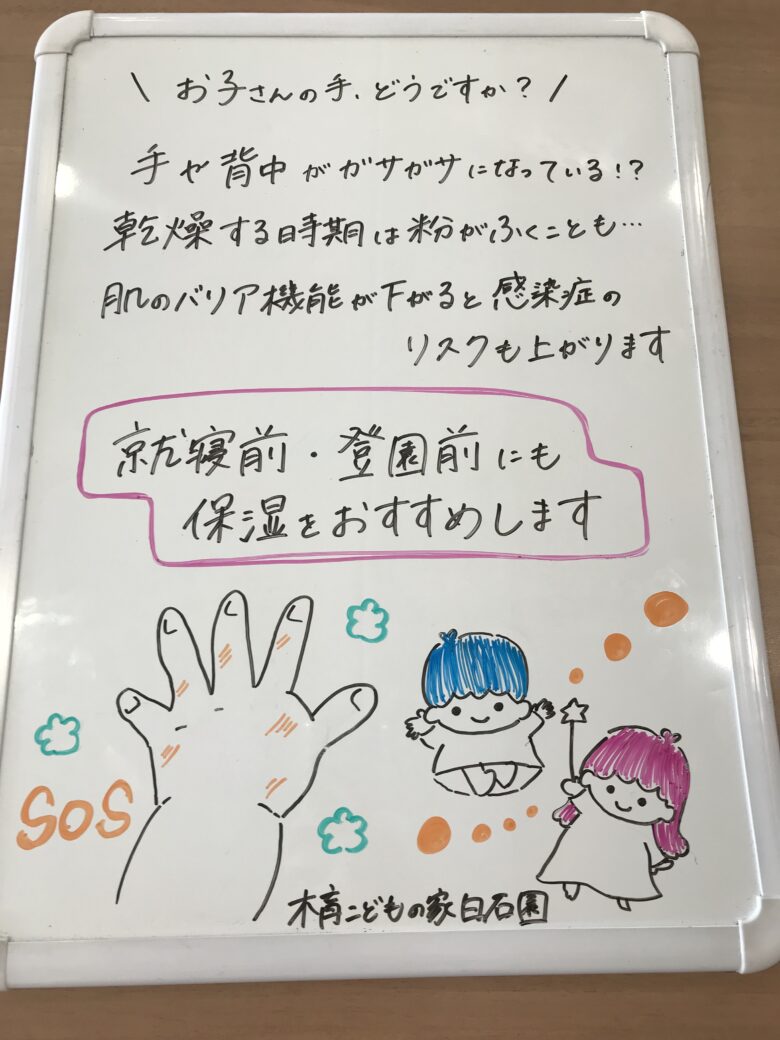 \ お子さんの手、どうですか? /
手や背中がガサガサになっている!?
乾燥する時期は粉がふくことも…
肌のバリア機能が下がると感染症の
リスクも上がります
就寝前・登園前にも
保湿をおすすめします
SOS
木育こどもの家白石園